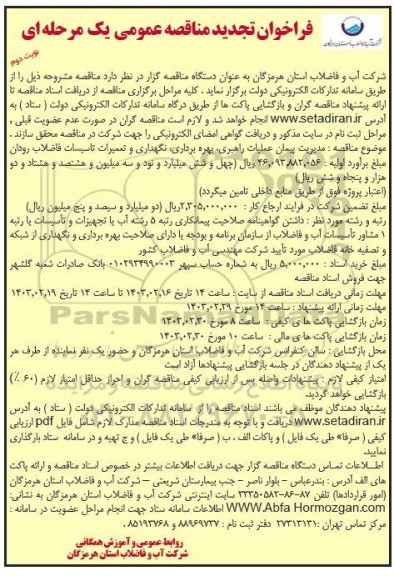 فراخوان تجدید مناقصه عمومی یک مرحله ای
نوبت دوم
شرکت آب و فاضلاب استان هرمزگان
شرکت آب و فاضلاب استان هرمزگان به عنوان دستگاه مناقصه گزار در نظر دارد مناقصه مشروحه ذیل را از
طریق سامانه تدارکات الکترونیکی دولت برگزار نماید . کلیه مراحل برگزاری مناقصه از دریافت اسناد مناقصه تا
ارائه پیشنهاد مناقصه گران و بازگشایی پاکت ها از طریق درگاه سامانه تدارکات الکترونیکی دولت ( ستاد ) به
آدرس www.setadiran.ir انجام خواهد شد و لازم است مناقصه گران در صورت عدم عضویت قبلی ،
مراحل ثبت نام در سایت مذکور و دریافت گواهی امضای الکترونیکی را جهت شرکت در مناقصه محقق سازند .
موضوع مناقصه : مدیریت پیمان عملیات راهبری، بهره برداری، نگهداری و تعمیرات تاسیسات فاضلاب رودان
مبلغ برآورد اولیه : ۴۶,۰۹۳,۸۸۲,۰۵۶ ریال (چهل و شش میلیارد و نود و سه میلیون و هشتصد و هشتاد و دو
هزار و پنجاه و شش ریال)
(اعتبار پروژه فوق از طریق منابع داخلی تامین میگردد)
مبلغ تضمین شرکت در فرایند ارجاع کار : ۲,۳۰۵,۰۰۰,۰۰۰ریال (دو میلیارد و سیصد و پنج میلیون ریال)
رتبه و رشته مورد نظر : داشتن گواهینامه صلاحیت پیمانکاری رتبه ۵ رشته آب یا تجهیزات و تأسیسات یا رتبه
۱ مشاور تأسیسات آب و فاضلاب از سازمان برنامه و بودجه یا دارای صلاحیت بهره برداری و نگهداری از شبکه
و تصفیه خانه فاضلاب مورد تأیید شرکت مهندسی آب و فاضلاب کشور
مبلغ خرید اسناد : ۵,۰۰۰,۰۰۰ ریال به شماره حساب سپهر ۰۱۰۲۹۳۴۹۹۰۰۰۳ بانک صادرات شعبه گلشهر
جهت فروش اسناد مناقصه
مهلت زمانی دریافت اسناد مناقصه از سایت : ساعت ۱۴ تاریخ ۱۴۰۳,۰۲,۱۶ تا ساعت ۱۴ تاریخ ۱۴۰۳,۰۲,۱۹
مهلت زمانی ارائه پیشنهاد : ساعت ۱۴ مورخ ۱۴۰۳,۰۲,۲۹
زمان بازگشایی پاکت ها ی کیفی : ساعت ۸ مورخ ۱۴۰۳,۰۲,۳۰
زمان بازگشایی پاکت های ی مالی : ساعت ۱۰ مورخ ۱۴۰۳,۰۲,۳۰
محل بازگشایی : سالن کنفرانس شرکت آب و فاضلاب استان هرمزگان و حضور یک نفر نماینده از طرف هر
یک از پیشنهاد دهندگان در جلسه بازگشایی پیشنهادها آزاد است
امتیاز کیفی لازم : پیشنهادات واصله پس از ارزیابی کیفی مناقصه گران و احراز حداقل امتیاز لازم (۶۰ ٪)
بازگشایی خواهد گردید.
پیشنهاد دهندگان موظف می باشند اسناد مناقصه را از سامانه تدارکات الکترونیکی دولت ( ستاد ) به آدرس
www.setadiran.ir دریافت و با توجه به مندرجات اسناد مناقصه مدارک لازم شامل فایل pdf ارزیابی
کیفی ( صرفاً» طی یک فایل ) و پاکات الف ، ب ( صرفا» طی یک فایل ) و ج تهیه و در سامانه ستاد بارگذاری
نمایید.
اطلاعات تماس دستگاه مناقصه گزار جهت دریافت اطلاعات بیشتر در خصوص اسناد مناقصه و ارائه پاکت
های الف آدرس : بندرعباس – بلوار ناصر – جنب بیمارستان شریعتی – شرکت آب و فاضلاب استان هرمزگان
(امور قراردادها) تلفن ۸۷-۸۶-۳۳۳۵۰۵۸۲ سایت اینترنتی شرکت آب و فاضلاب استان هرمزگان به نشانی:
WWW.Abfa Hormozgan.com اطلاعات سامانه ستاد جهت انجام مراحل عضویت در سامانه :
مرکز تماس تهران : ۲۷۳۱۳۱۳۱ دفتر ثبت نام : ۸۸۹۶۹۷۳۷ و ۸۵۱۹۳۷۶۸ .
روابط عمومی و آموزش همگانی
شرکت آب و فاضلاب استان هرمزگان